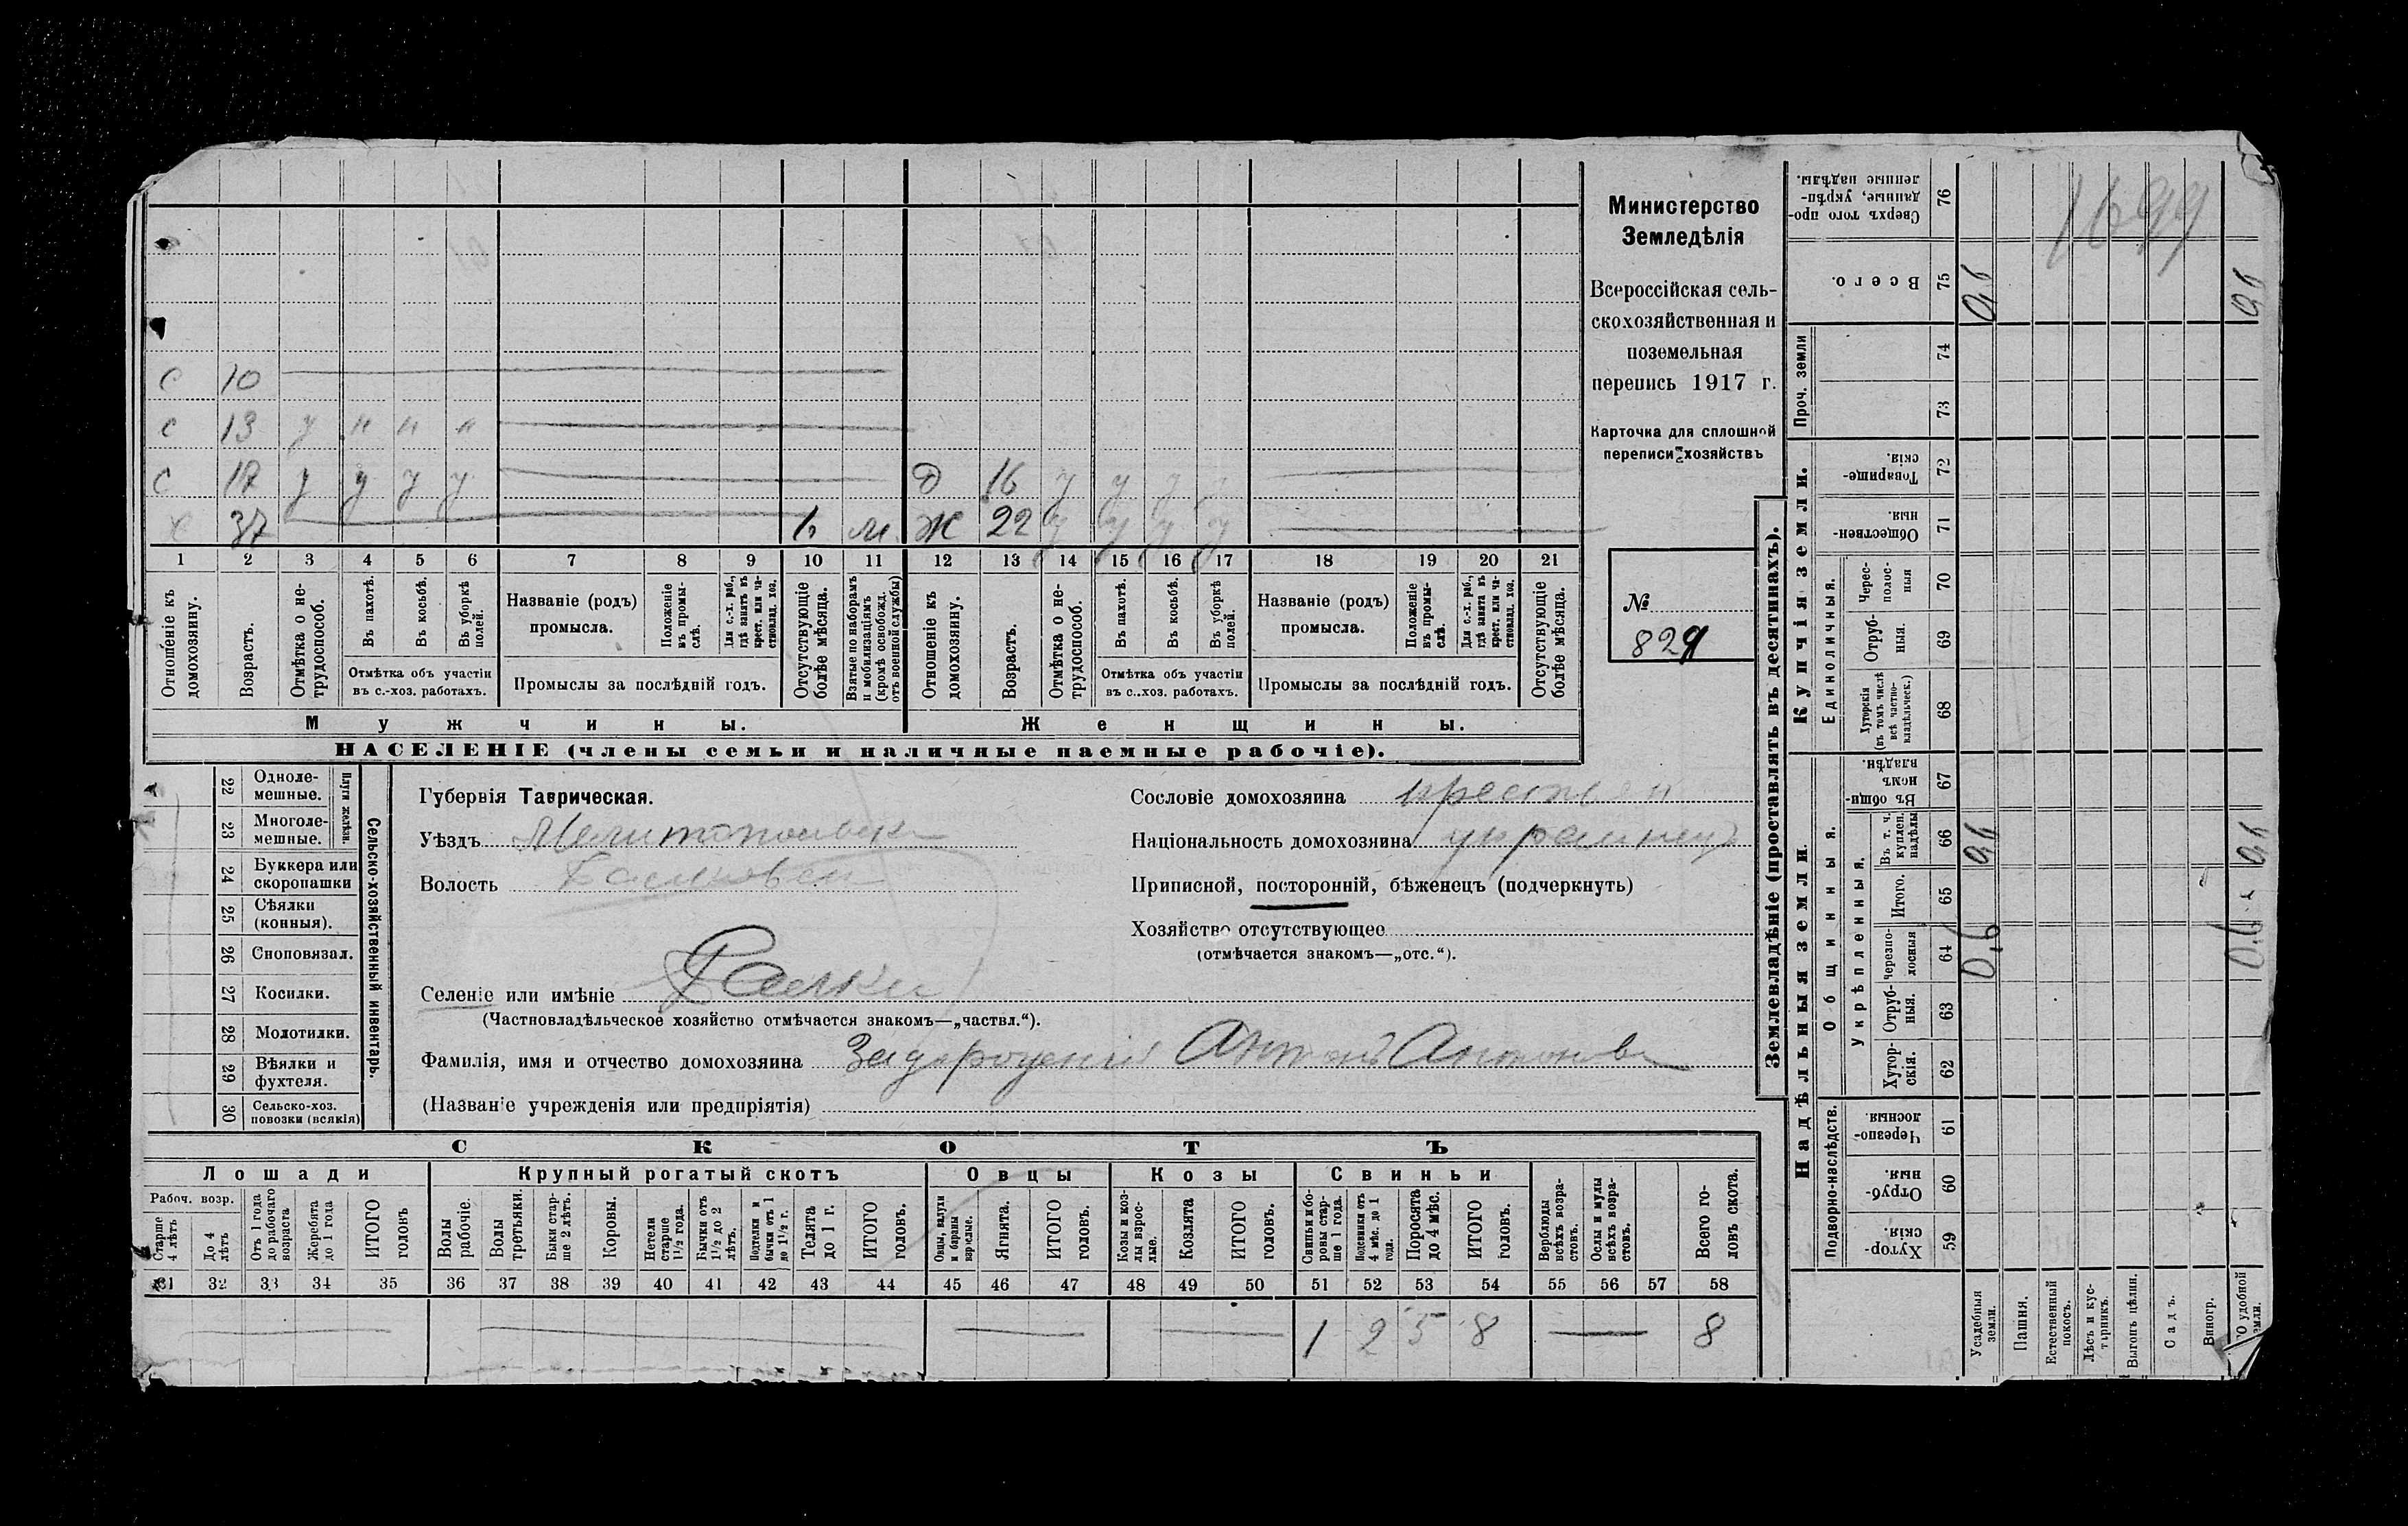 Министерство
Земледѣлія
Всероссійская сель-
скохозяйственная и
поземельная
перепись 1917 г.
Карточка для сплошной
переписи хозяйствъ
№
829
с 10
с 13 у н н н
с 17 у у у у
Д 16 у у у
х 37
6 м
Ж 22 у у у у
1 2 3 4 5 6 7 8 9 10 11 12 13 14 15 16 17 18 19 20 21
Отношеніе къ домохозяину.
Возрастъ.
Отмѣтка о не-трудоспособ.
Въ пахотѣ.
Въ косьбѣ.
Въ уборкѣ полей.
Отмѣтка объ участіи въ с.-хоз. работахъ.
Названіе (родъ) промысла.
Положеніе въ промы-слѣ.
Для с.-х. раб., гдѣ занятъ въ крест. или ча-стновлад. хоз.
Промыслы за послѣдній годъ.
Отсутствующіе болѣе мѣсяца.
Взятые по наборамъ и мобилизаціямъ (кромѣ освобожд. отъ военной службы)
Отношеніе къ домохозяину.
Возрастъ.
Отмѣтка о не-трудоспособ.
Въ пахотѣ.
Въ косьбѣ.
Въ уборкѣ полей.
Отмѣтка объ участіи въ с.-хоз. работахъ.
Названіе (родъ) промысла.
Положеніе въ промы-слѣ.
Для с.-х. раб., гдѣ занята въ крест. или ча-стновлад. хоз.
Промыслы за послѣдній годъ.
Отсутствующіе болѣе мѣсяца.
Мужчины.
Женщины.
НАСЕЛЕНІЕ (члены семьи и наличные наемные рабочіе).
Сельско-хозяйственный инвентарь.
Плуги желѣзн.
22 Одноле-мешные.
23 Многоле-мешные.
24 Буккера или скоропашки
25 Сѣялки (конныя).
26 Сноповязал.
27 Косилки.
28 Молотилки.
29 Вѣялки и фухтеля.
30 Сельско-хоз. повозки (всякія)
Губернія Таврическая.
Уѣздъ Мелитопольск
Волость Балковск
Селеніе или имѣніе Балки
(Частновладѣльческое хозяйство отмѣчается знакомъ—„частвл.“).
Фамилія, имя и отчество домохозяина Задорожній Антонъ Антонов
(Названіе учрежденія или предпріятія)
Сословіе домохозяина крестьян
Національность домохозяина украинецъ
Приписной, посторонній, бѣженецъ (подчеркнуть)
Хозяйство отсутствующее
(отмѣчается знакомъ—„отс.“).
СКОТЪ
Лошади
Крупный рогатый скотъ
Овцы
Козы
Свиньи
Рабоч. возр.
Старше 4 лѣтъ
До 4 лѣтъ
Отъ 1 года до рабочаго возраста
Жеребята до 1 года
ИТОГО головъ
Волы рабочіе.
Волы третьяки.
Быки стар-ше 2 лѣтъ.
Коровы.
Нетели старше 1½ года.
Бычки отъ 1½ до 2 лѣтъ.
Подтелки и бычки отъ 1 до 1½ г.
Телята до 1 г.
ИТОГО головъ.
Овцы, валухи и бараны взрослые.
Ягнята.
ИТОГО головъ.
Козы и коз-лы взрос-лые.
Козлята
ИТОГО головъ.
Свиньи и бо-ровы стар-ше 1 года.
Подсвинки отъ 4 мѣс. до 1 года.
Поросята до 4 мѣс.
ИТОГО головъ.
Верблюды всѣхъ возра-стовъ.
Ослы и мулы всѣхъ возра-стовъ.
Всего го-ловъ скота.
31 32 33 34 35 36 37 38 39 40 41 42 43 44 45 46 47 48 49 50 51 52 53 54 55 56 57 58
1 2 5 8 8
Землевладѣніе (проставлять въ десятинахъ).
Купчія земли.
Надѣльныя земли.
Единоличныя.
Общинныя.
Укрѣпленныя.
Подворно-наслѣдств.
Проч. земли
Сверхъ того про-данные, укрѣп-ленные надѣлы. 76
Всего. 75
74
73
Товарище-скія. 72
Обществен-ныя. 71
Черес-полос-ныя 70
Отруб-ныя. 69
Хуторскія (въ томъ числѣ всѣ частно-владѣльческ.) 68
Въ общин-номъ владѣн. 67
Въ т. ч. куплен. надѣлы 66
Итого. 65
Черезпо-лосныя 64
Отруб-ныя. 63
Хутор-скія. 62
Черезпо-лосныя. 61
Отруб-ныя. 60
Хутор-скія. 59
Усадебныя земли.
Пашня.
Естественный покосъ.
Лѣсъ и кус-тарникъ.
Выгонъ цѣлин.
Садъ.
Виногр.
удобной земли.
1699
0,6
0,6
0,6
0,6
0,6
0,6